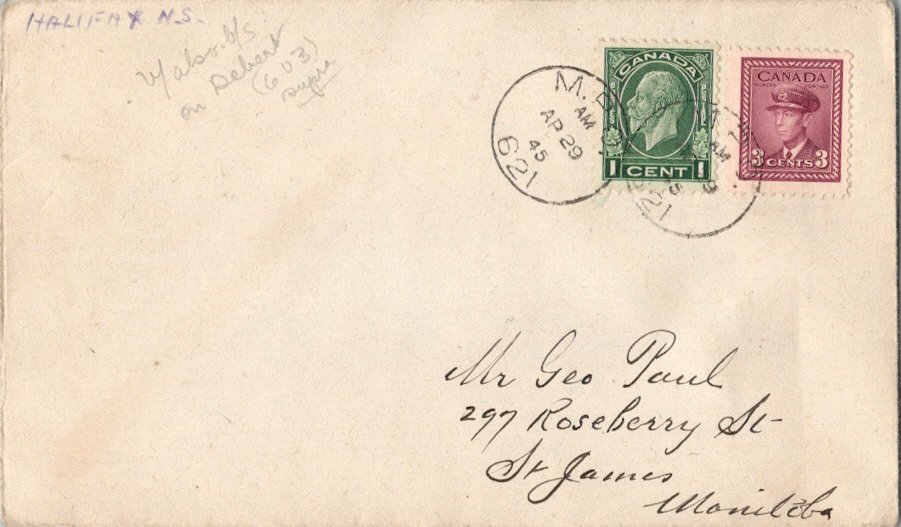 HALIFAX N.S.
on Debert
(603)
supra
M.P.
AM
AP 29
45
621
CANADA
1 CENT
CANADA
POSTES POSTAGE
3 CENTS 3
AM
21
Mr Geo Paul
297 Roseberry St
St James
Manitoba